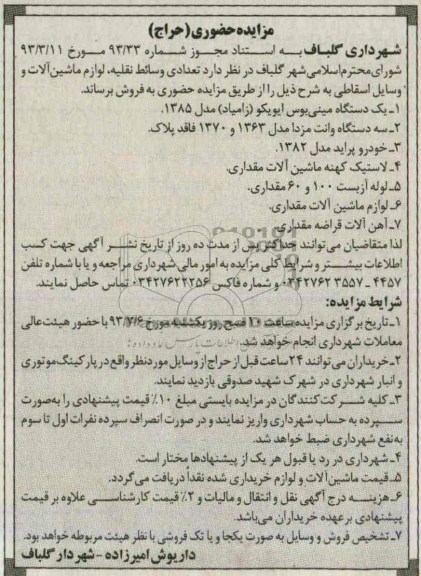 مزایده حضوری (حراج)
شهرداری گلباف به استناد مجوز شماره ۹۳/۳۳ مورخ ۹۳/۳/۱۱
شورای محترم اسلامی شهر گلباف در نظر دارد تعدادی وسائط نقلیه، لوازم ماشین آلات و
وسایل اسقاطی به شرح ذیل را از طریق مزایده حضوری به فروش برساند.
۱ـ یک دستگاه مینی بوس ایویکو (زامیاد) مدل ۱۳۸۵.
۲ـ سه دستگاه وانت مزدا مدل ۱۳۶۳ و ۱۳۷۰ فاقد پلاک.
۳ـ خودرو پراید مدل ۱۳۸۲.
۴ـ لاستیک کهنه ماشین آلات مقداری.
۵ـ لوله آزبست ۱۰۰ و ۶۰ مقداری.
۶ـ لوازم ماشین آلات مقداری.
۷ـ آهن آلات قراضه مقداری.
لذا متقاضیان می توانند حداکثر پس از مدت ده روز از تاریخ نشر آگهی جهت کسب
اطلاعات بیشتر و شرایط کلی مزایده به امور مالی شهرداری مراجعه و یا با شماره تلفن
۴۴۵۷ - ۰۳۴۲۷۶۲۳۵۵۷ و شماره فاکس ۰۳۴۲۷۶۲۴۲۵۶ تماس حاصل نمایند.
شرایط مزایده:
۱ـ تاریخ برگزاری مزایده ساعت ۱۰ صبح روز یکشنبه مورخ ۹۳/۷/۶ با حضور هیئت عالی
معاملات شهرداری انجام خواهد شد.
۲ـ خریداران می توانند ۲۴ ساعت قبل از حراج از وسایل مورد نظر واقع در پارکینگ موتوری
و انبار شهرداری در شهرک شهید صدوقی بازدید نمایند.
۳ـ کلیه شرکت کنندگان در مزایده بایستی مبلغ ۱۰٪ قیمت پیشنهادی را به صورت
سپرده به حساب شهرداری واریز نمایند و در صورت انصراف سپرده نفرات اول تا سوم
به نفع شهرداری ضبط خواهد شد.
۴ـ شهرداری در رد یا قبول هر یک از پیشنهادها مختار است.
۵ـ قیمت ماشین آلات و لوازم خریداری شده نقداً دریافت می گردد.
۶ـ هزینه درج آگهی نقل و انتقال و مالیات و ۲٪ قیمت کارشناسی علاوه بر قیمت
پیشنهادی بر عهده خریداران می باشد.
۷ـ تشخیص فروش و وسایل به صورت یکجا و یا تک فروشی با نظر هیئت مربوطه خواهد بود.
داریوش امیرزاده - شهردار گلباف